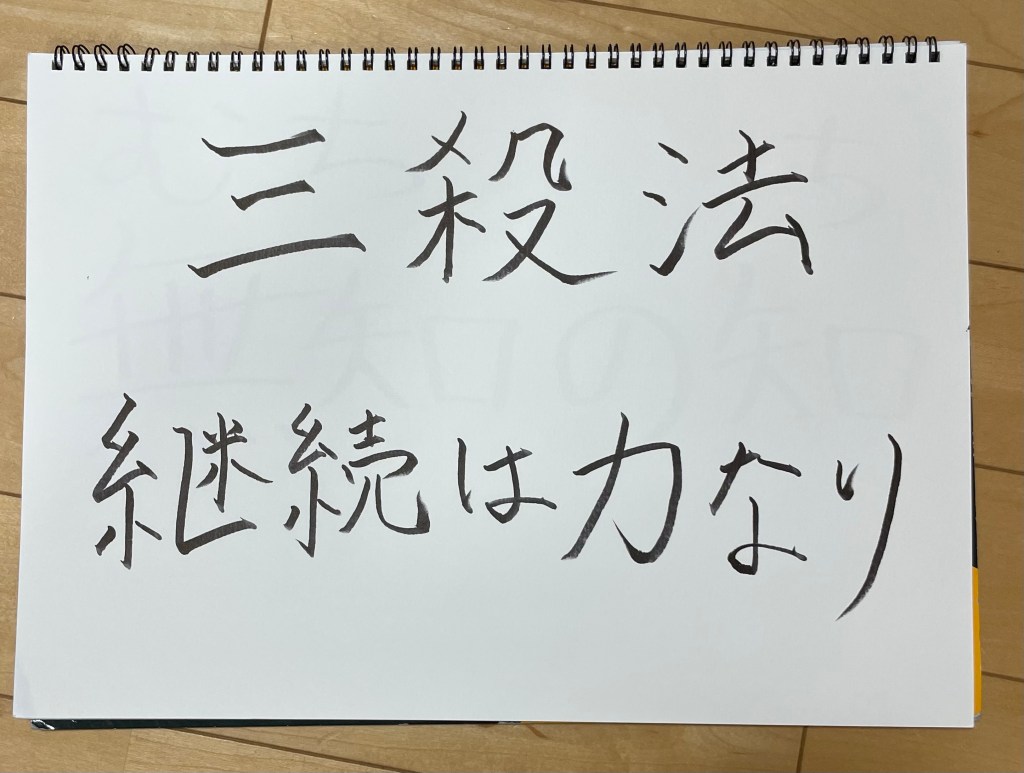 三殺法
継続は力なり